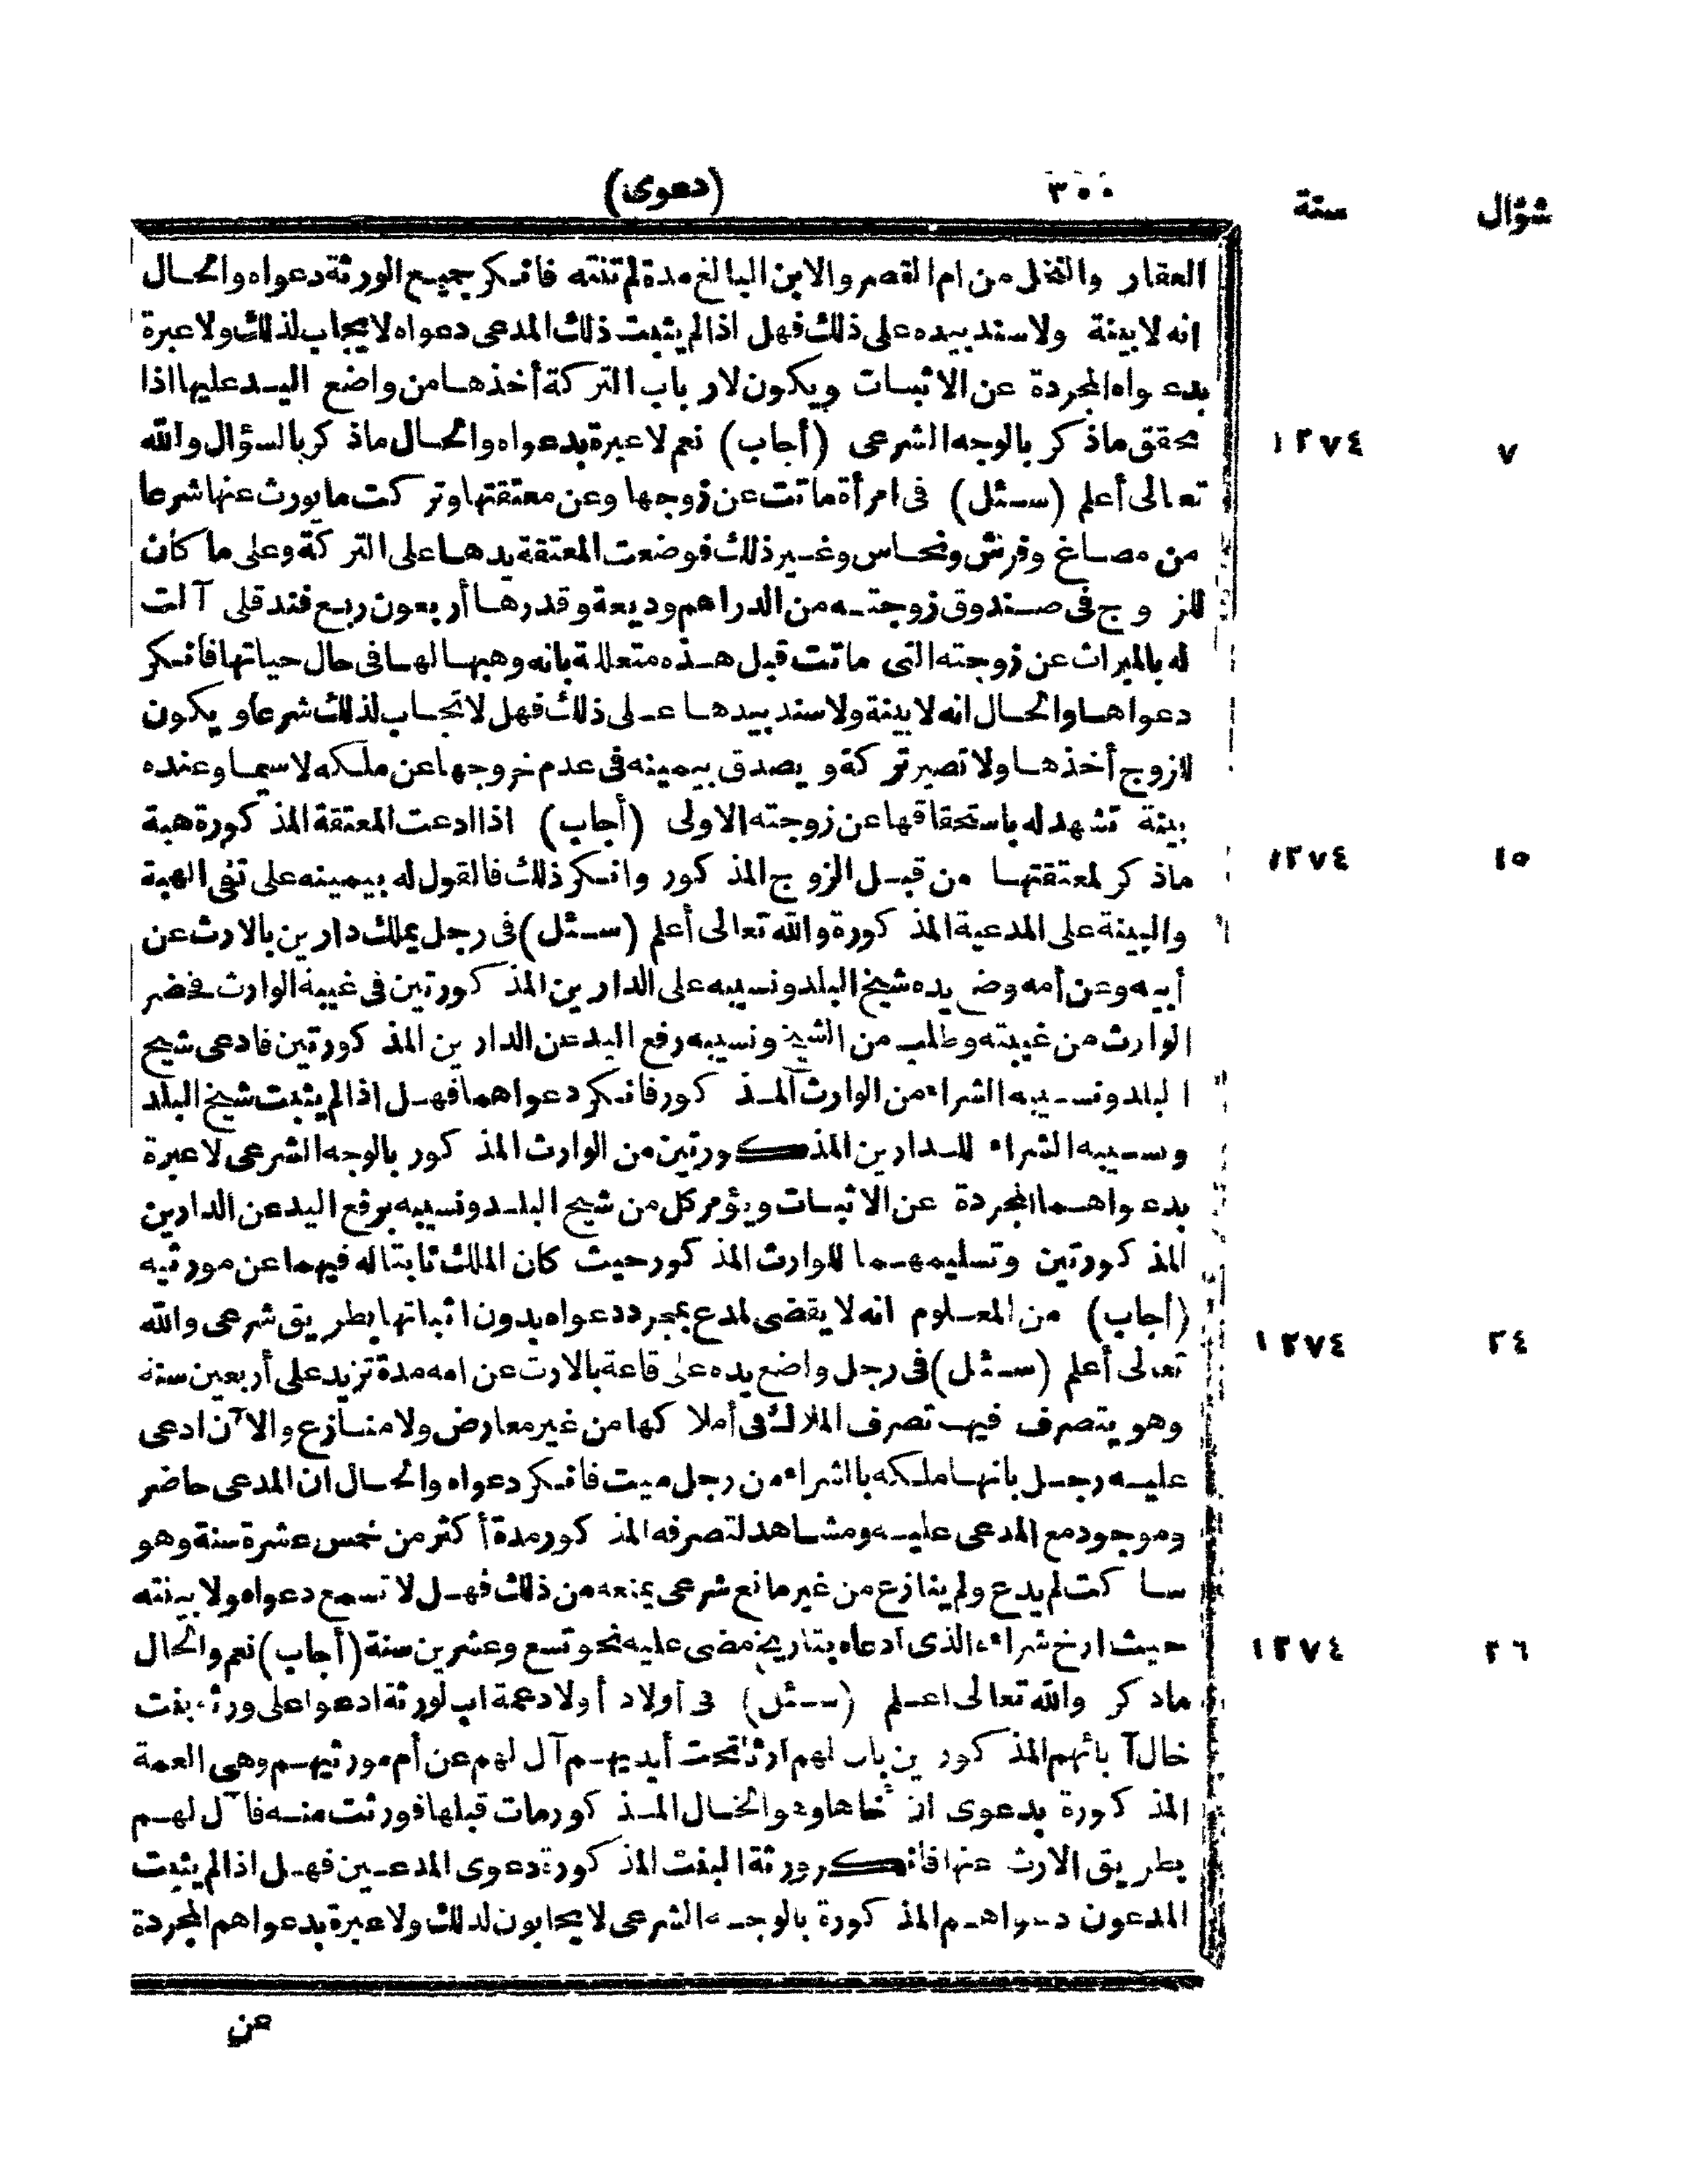 شوّال سنة ٣٠٠ (دعوى)
العقار والنخل من ام القصر والابن البالغ مدة لم تنته فانكر جميع الورثة دعواه والحال
انه لا بينة ولا سند بيده على ذلك فهل اذا لم يثبت ذلك المدعى دعواه لا يجاب لذلك ولا عبرة
بدعواه المجردة عن الاثبات ويكون لارباب التركة أخذها من واضع اليد عليها اذا
تحقق ماذكر بالوجه الشرعى (أجاب) نعم لا عبرة بدعواه والحال ماذكر بالسؤال والله
٧ ١٢٧٤
تعالى أعلم (سئل) فى امرأة ماتت عن زوجها وعن معتقتها وتركت ما يورث عنها شرعا
من مصاغ وفرش ونحاس وغير ذلك فوضعت المعتقة يدها على التركة وعلى ما كان
للزوج فى صندوق زوجته من الدراهم وديعة وقدرها أربعون ربع فندقلى آلت
له بالميراث عن زوجته التى ماتت قبل هذه متعللة بانه وهبها لها فى حال حياتها فانكر
دعواها والحال انه لا بينة ولا سند بيدها على ذلك فهل لا تجاب لذلك شرعا ويكون
للزوج أخذها ولا تصير تركة ويصدق بيمينه فى عدم خروجها عن ملكه لا سيما وعنده
بينة تشهد له باستحقاقها عن زوجته الاولى (أجاب) اذا ادعت المعتقة المذكورة هبة
ماذكر لمعتقتها من قبل الزوج المذكور وانكر ذلك فالقول له بيمينه على نفى الهبة
١٥ ١٢٧٤
والبينة على المدعية المذكورة والله تعالى أعلم (سئل) فى رجل يملك دارين بالارث عن
أبيه وعن أمه وضع يده شيخ البلد ونسيبه على الدارين المذكورتين فى غيبة الوارث فحضر
الوارث من غيبته وطلب من الشيخ ونسيبه رفع اليد عن الدارين المذكورتين فادعى شيخ
البلد ونسيبه الشراء من الوارث المذكور فانكر دعواهما فهل اذا لم يثبت شيخ البلد
ونسيبه الشراء للدارين المذكورتين من الوارث المذكور بالوجه الشرعى لا عبرة
بدعواهما المجردة عن الاثبات ويؤمر كل من شيخ البلد ونسيبه برفع اليد عن الدارين
المذكورتين وتسليمهما للوارث المذكور حيث كان الملك ثابتا له فيهما عن مورثيه
(أجاب) من المعلوم انه لا يقضى لمدع بمجرد دعواه بدون اثباتها بطريق شرعى والله
٢٤ ١٢٧٤
تعالى أعلم (سئل) فى رجل واضع يده على قاعة بالارث عن امه مدة تزيد على أربعين سنة
وهو يتصرف فيها تصرف الملاك فى أملاكها من غير معارض ولا منازع والآن ادعى
عليه رجل بانها ملكه بالشراء من رجل ميت فانكر دعواه والحال ان المدعى حاضر
وموجود مع المدعى عليه ومشاهد لتصرفه المذكور مدة أكثر من خمس عشرة سنة وهو
ساكت لم يدع ولم ينازع من غير مانع شرعى يمنعه من ذلك فهل لا تسمع دعواه ولا بينته
حيث ارخ شراءه الذى ادعاه بتاريخ مضى عليه نحو تسع وعشرين سنة (أجاب) نعم والحال
٢٦ ١٢٧٤
ماذكر والله تعالى اعلم (سئل) فى أولاد أولاد عمة اب لورثة ادعوا على ورثة بنت
خال آبائهم المذكورين بان لهم ارثا تحت أيديهم آل لهم عن أم مورثيهم وهى العمة
المذكورة بدعوى ان أخاها وهو الخال المذكور مات قبلها فورثت منه فآل لهم
بطريق الارث عنها فانكر ورثة البنت المذكورة دعوى المدعين فهل اذا لم يثبت
المدعون دعواهم المذكورة بالوجه الشرعى لا يجابون لذلك ولا عبرة بدعواهم المجردة
عن